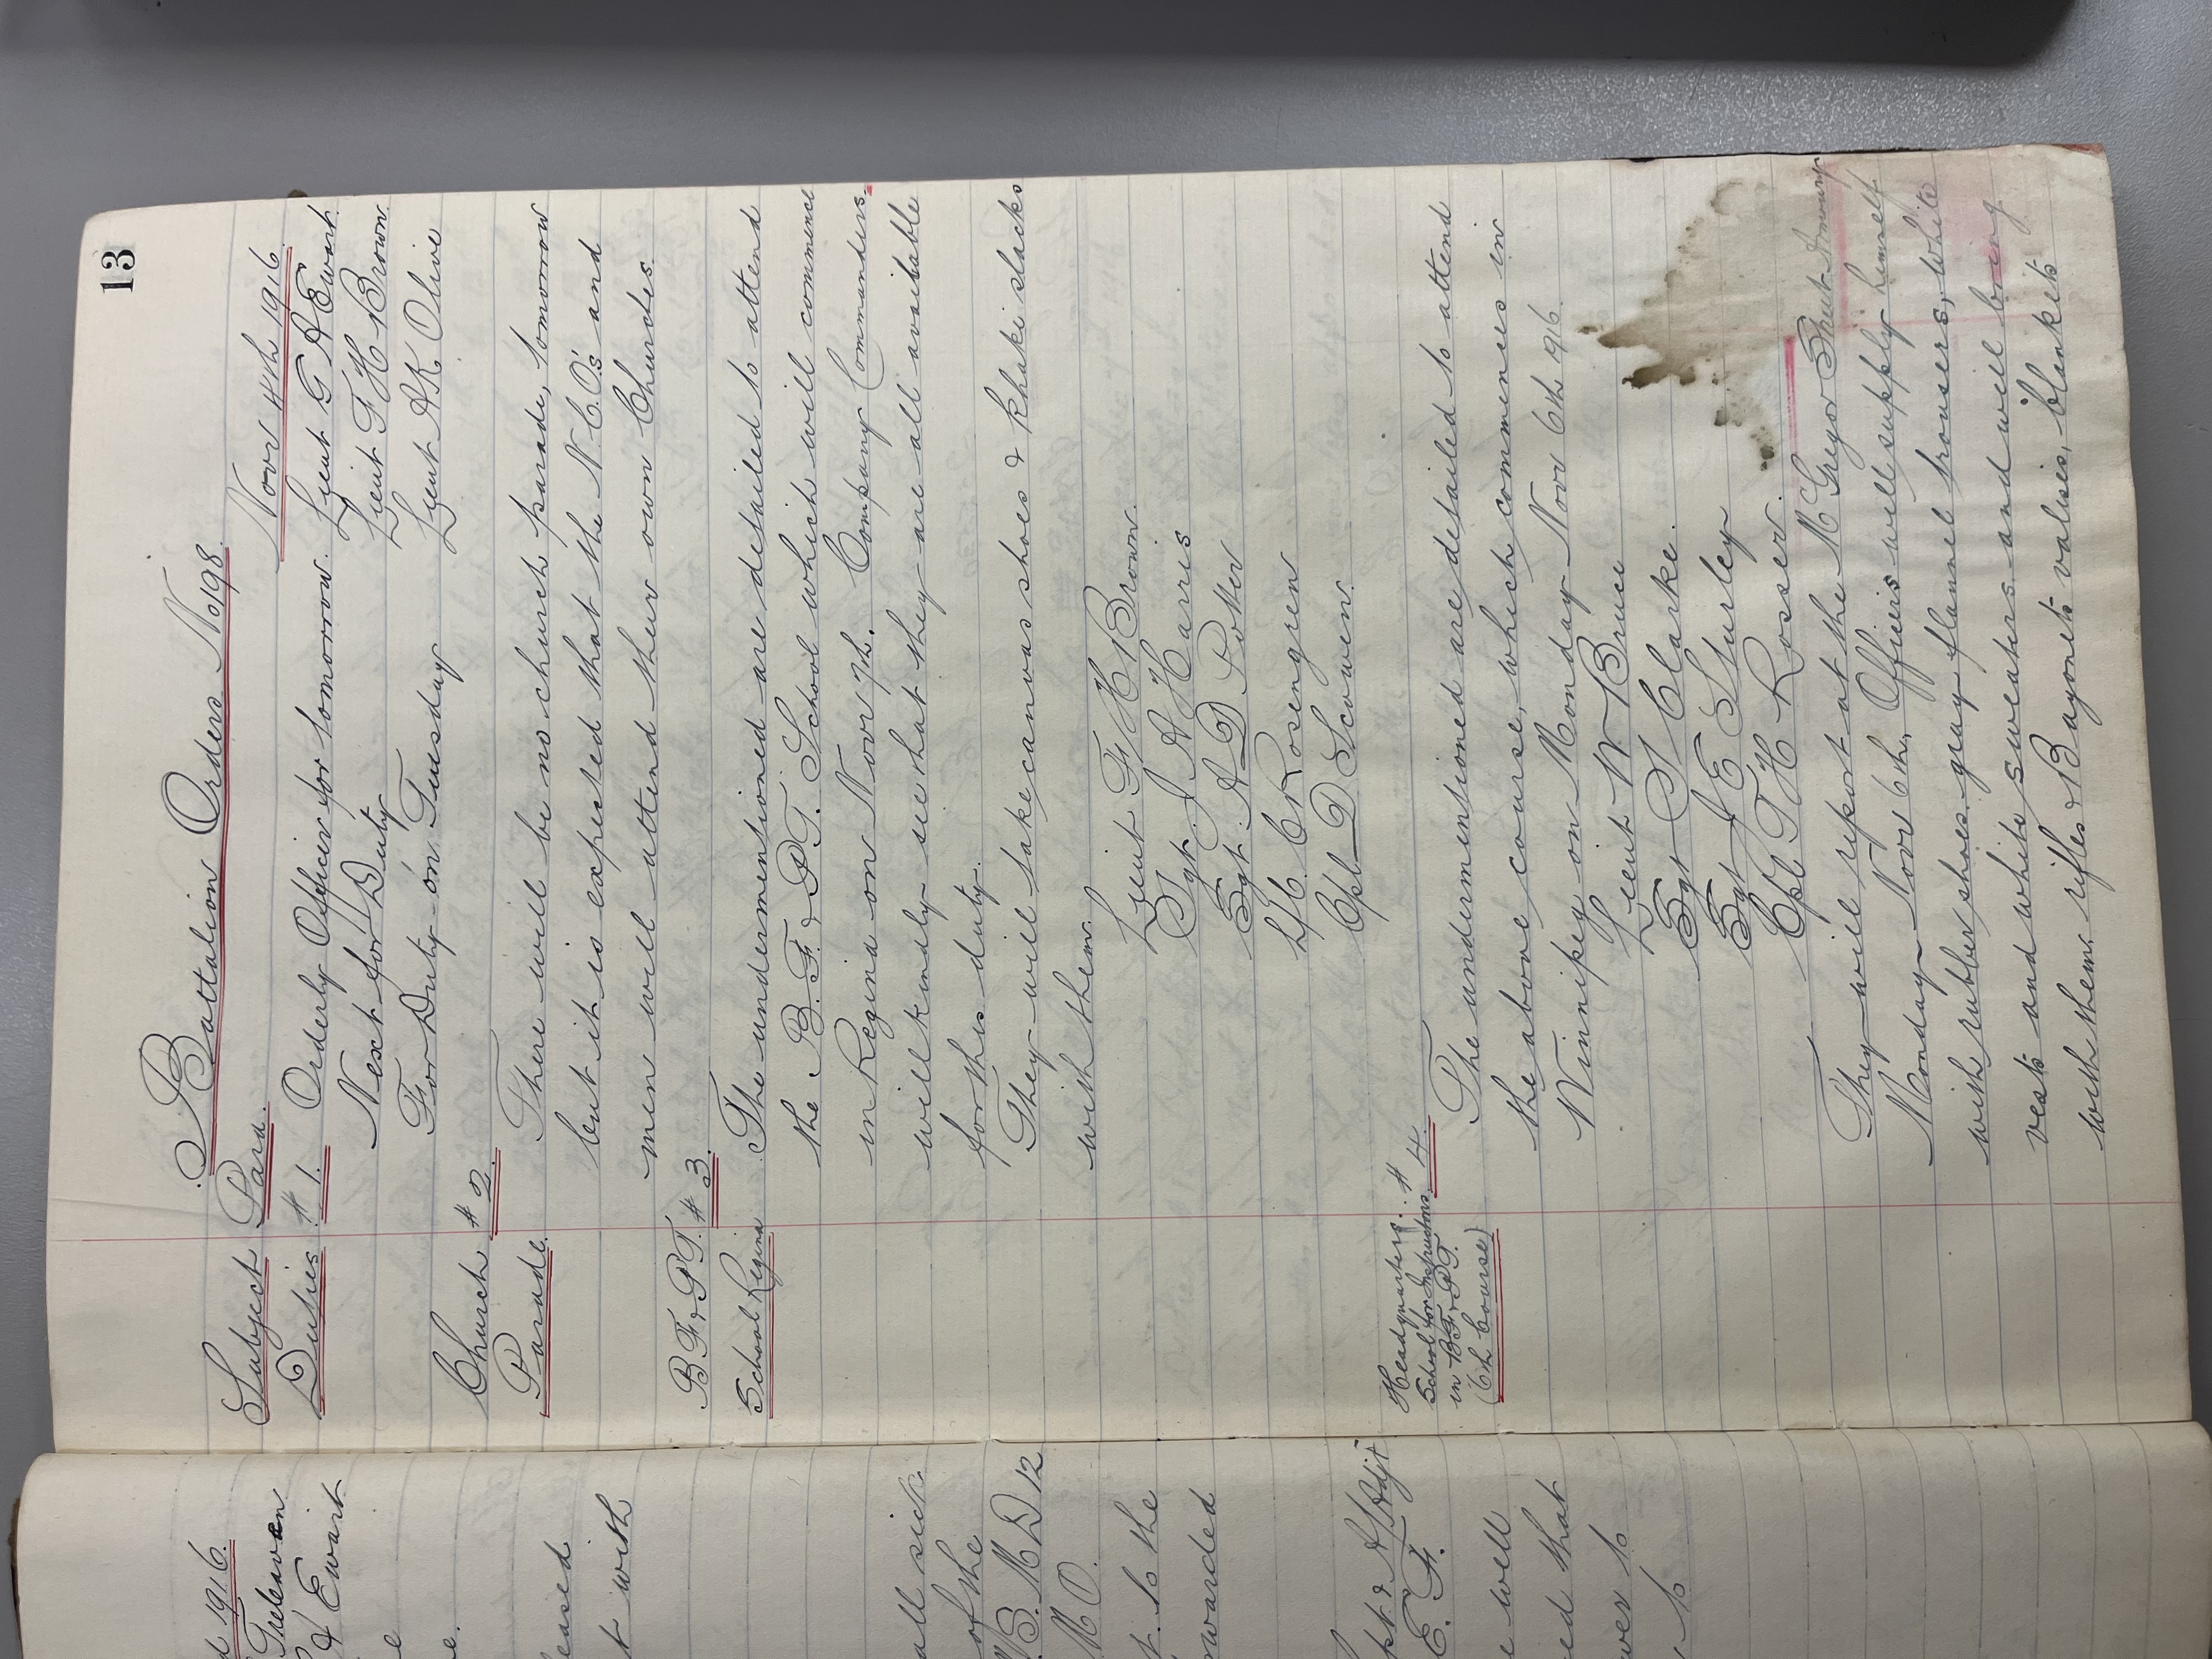 13
Battalion Orders No 198.
Subject Para. Novr 4th 1916.
Duties #1. Orderly Officer for tomorrow. Lieut G A Ewart.
Next for Duty Lieut F H Brown.
For Duty on Tuesday Lieut A K Olive
Church #2. There will be no church parade, tomorrow
Parade. but it is expected that the N.C.O's and
men will attend their own Churches.
B F & P T. #3.
School Regina The undermentioned are detailed to attend
the B. F. & P T. School which will commence
in Regina on Novr 7th. Company Commanders.
will kindly see that they are all available
for this duty.
They will take canvas shoes & khaki slacks
with them.
Lieut F H Brown.
Sgt. J A Harris
Sgt. A D Potter
L/C. C Rosengren
Cpl D Scowen.
Headquarters. #4.
School for Instructors.
in B F & P T.
(6th Course)
The undermentioned are detailed to attend
the above course, which commences in
Winnipeg on Monday Novr 6th 1916.
Lieut W Bruce
Sgt S Clarke.
Sgt J E Sturley
Cpl T H Rosser.
They will report at the McGregor Street Armoury
Monday Novr 6th, Officers will supply himself
with rubber shoes. gray flannel trousers, white
vest and white sweaters and will bring
with them rifles & Bayonets valises, blankets
1916.
Treleaven
Ewart
e
e.
eased
t with
all sick
of the
M D 12
M O.
t. to the
rwarded
& A/Adjt
E. F.
e well
ed that
wer to
to